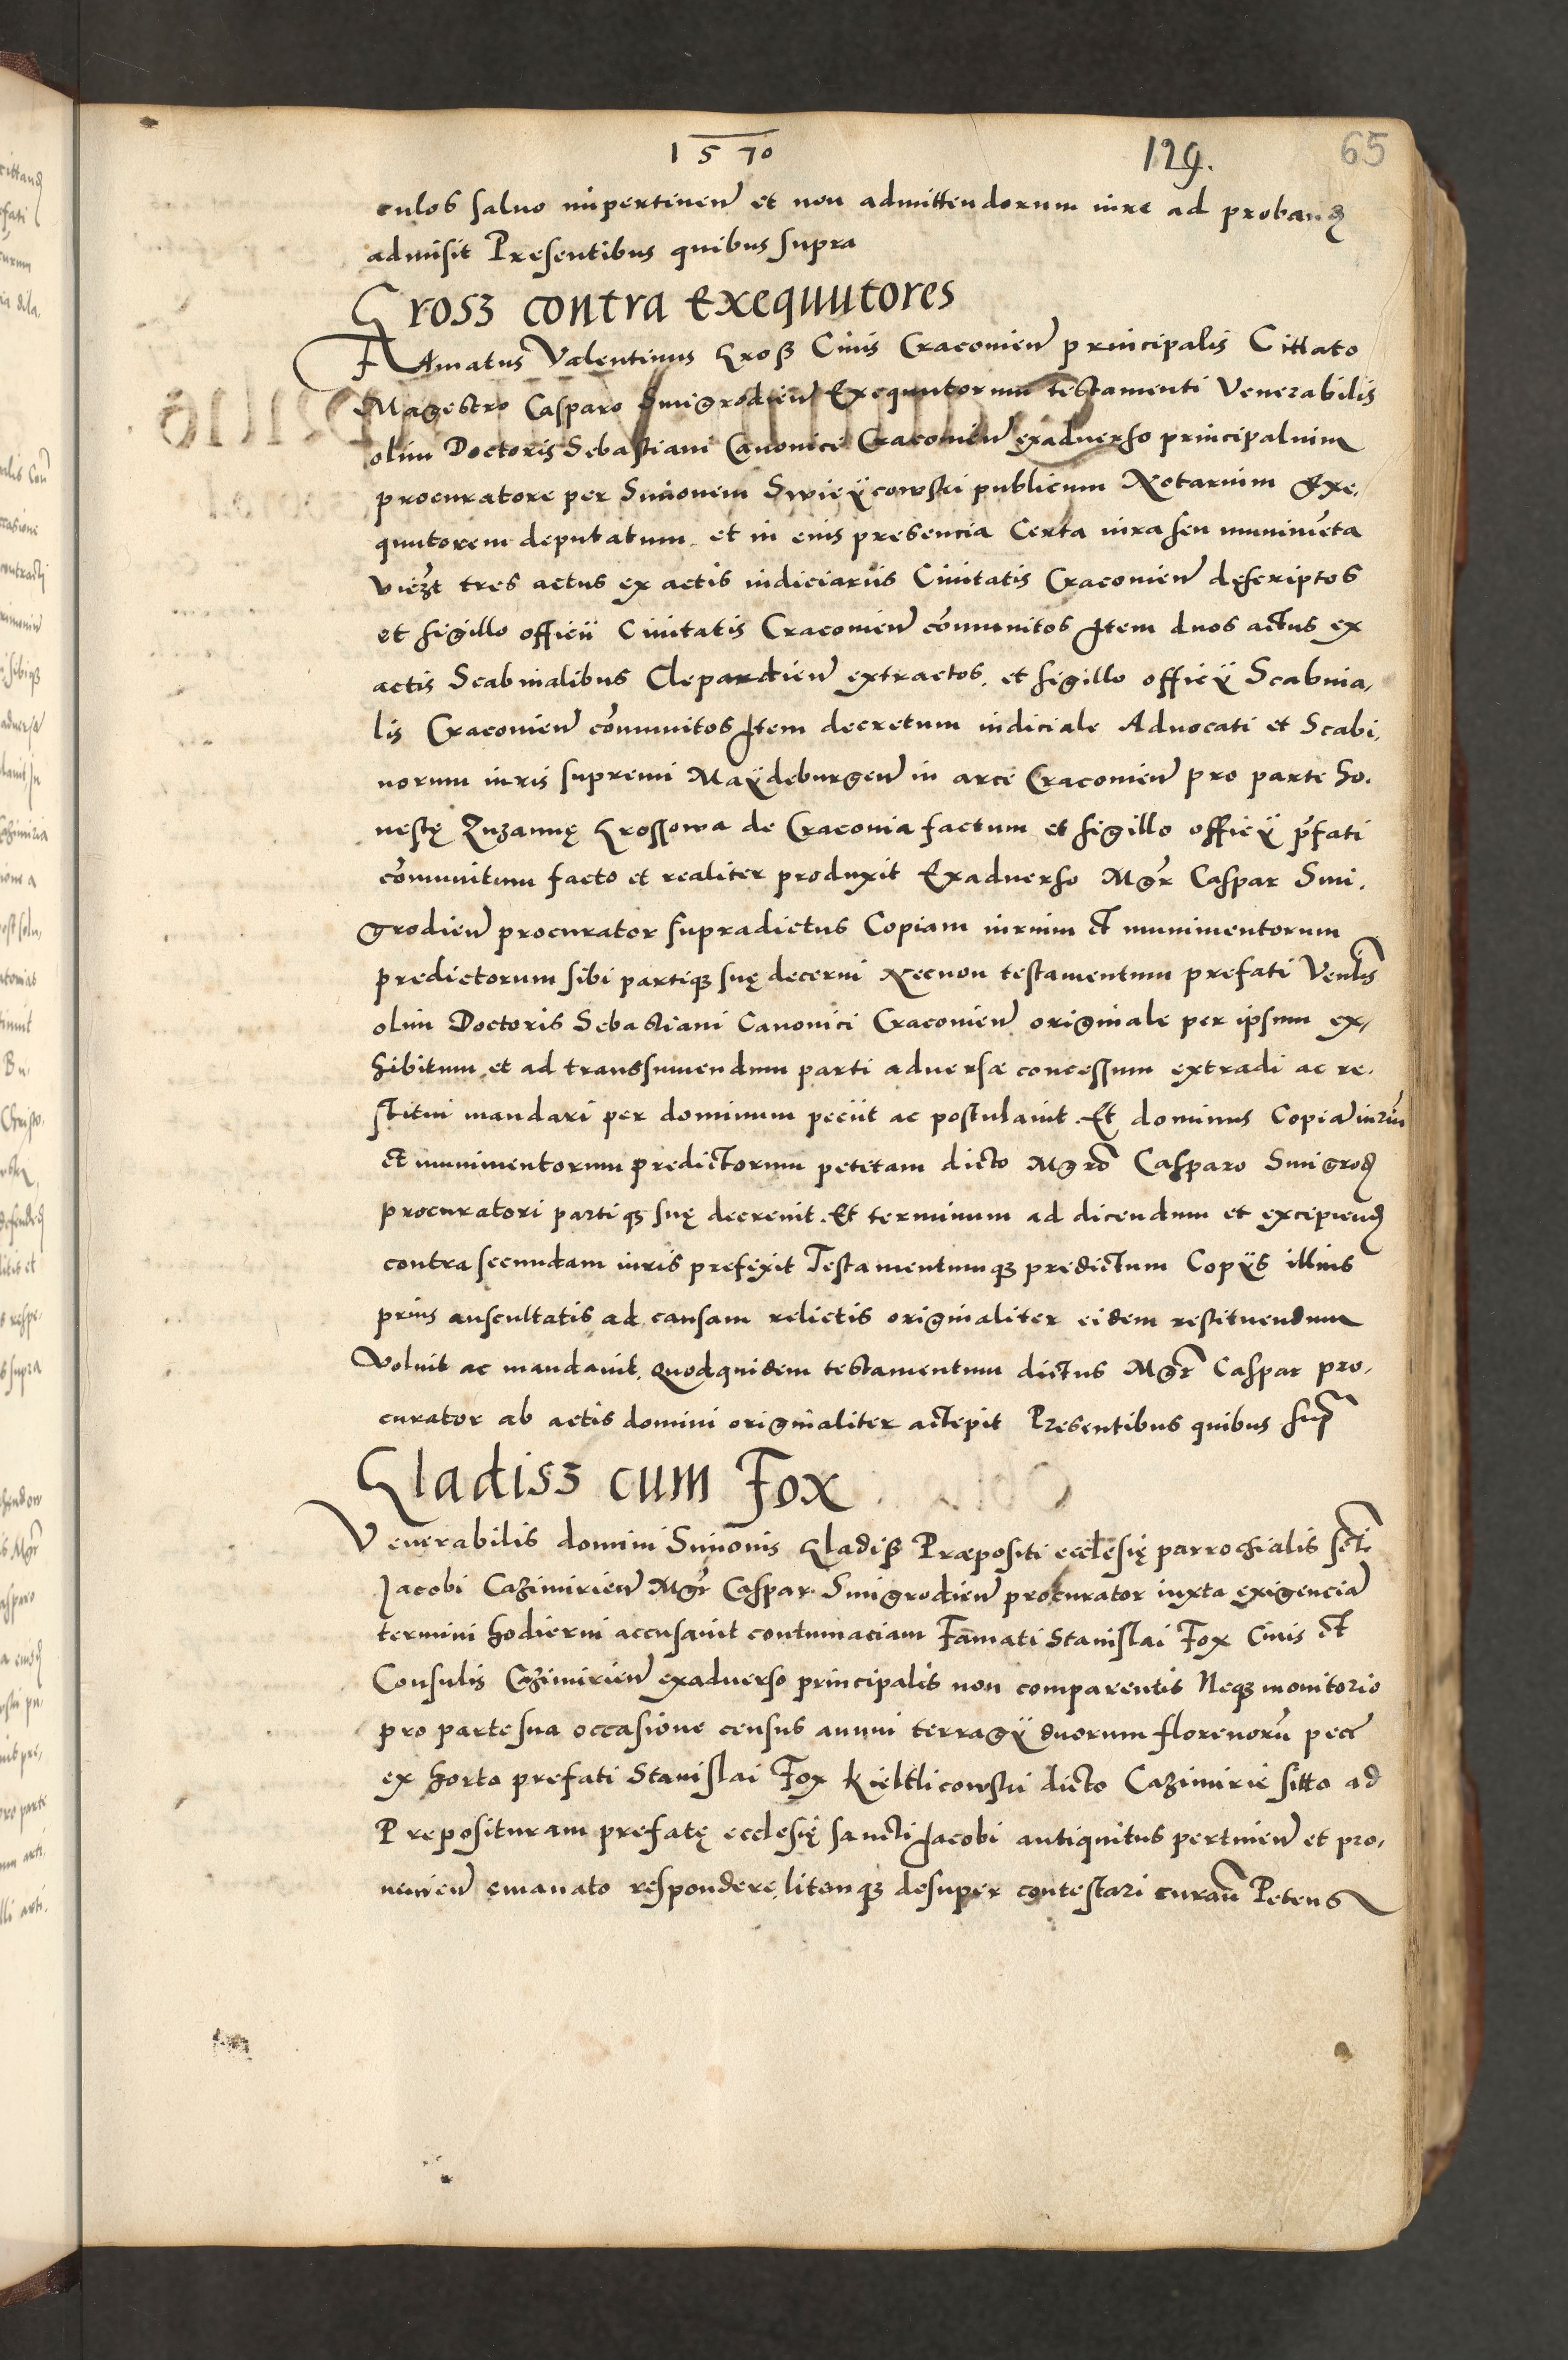 1570 129. 65
culos saluo impertinen et non admittendorum iure ad proband
admisit Presentibus quibus supra
Grosz contra Exequutores
FAmatus Valentinus Groß Ciuis Cracouien principalis Cittato
Magestro Casparo Smigrodien Exequutorum testamenti Venerabilis
olim Doctoris Sebastiani Canonici Cracouien exaduerso principalium
procuratore per Simonem Swieÿcowski publicum Notarium Exe,
quutorem deputatum et in eius presencia Certa iura seu munimẽta
vieзt tres actus ex actis iudiciariis Ciuitatis Cracouien descriptos
et sigillo officii Ciuitatis Cracouien cõmunitos Item duos actus ex
actis Scabinalibus Clepardien extractos, et sigillo officÿ Scabina,
lis Cracouien cõmunitos Item decretum iudiciale Aduocati et Scabi,
norum iuris supremi Maÿdeburgen in arce Cracouien pro parte ho,
nestę Zuzannę Grossowa de Cracouia factum et sigillo officÿ p̃fati
cõmunitum facto et realiter produxit Exaduerso Mgr̃ Caspar Smi,
grodien procurator supradictus Copiam iurium et munimentorum
predictorum sibi partiqз suę decerni Necnon testamentum prefati Venlis
olim Doctoris Sebastiani Canonici Cracouien originale per ipsum ex,
hibitum et ad transsumendum parti aduersæ concessum extradi ac re,
stitui mandari per dominum peciit ac postulauit. Et dominus Copiã iuriũ
et munimentorum predictorum petitam dicto Mgrõ Casparo Smigrod
procuratori partiqз suę decreuit. Et terminum ad dicendum et excipiend
contra secundam iuris prefixit Testamentumqз predictum Copÿs illius
prius auscultatis ad causam relictis originaliter eidem restituendum
Voluit ac mandauit, Quodquidem testamentum dictus Mgr̃ Caspar pro,
curator ab actis domini originaliter accepit Presentibus quibus sup̃
Gladisz cum Fox
Venerabilis domini Simonis Gladiß Præpositi ecclesię parrochialis scti
Jacobi Cazimirien Mgr̃ Caspar Smigrodien procurator iuxta exigenciã
termini hodierni accusauit contumaciam Famati Stanislai Fox Ciuis et
Consulis Cazimirien exaduerso principalis non comparentis Neqз monitorio
pro parte sua occasione census annui terragÿ duorum florenorũ pecẽ
ex horto prefati Stanislai Fox Kieltlicowski dicto Cazimirie sitto ad
Preposituram prefatę ecclesię sancti Jacobi antiquitus pertinen et pro,
uenien emanato respondere, litemqз desuper contestari curan̄ Petens